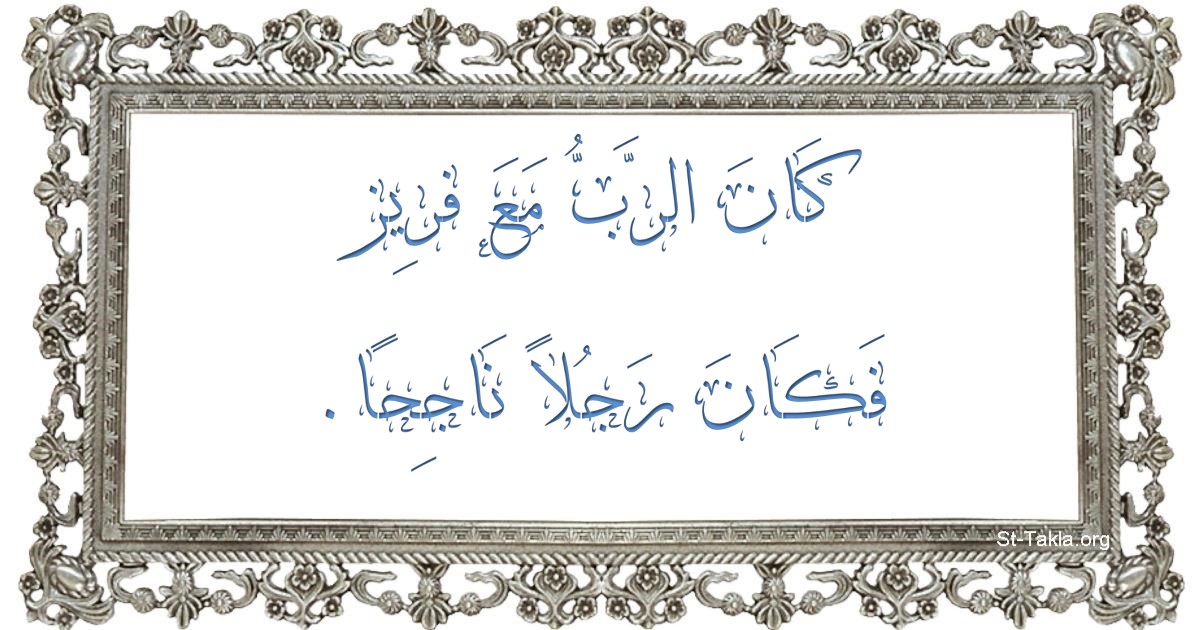 كَانَ الرَّبُّ مَعَ فريِز
فَكَانَ رَجُلاً نَاجِحًا .
St-Takla.org